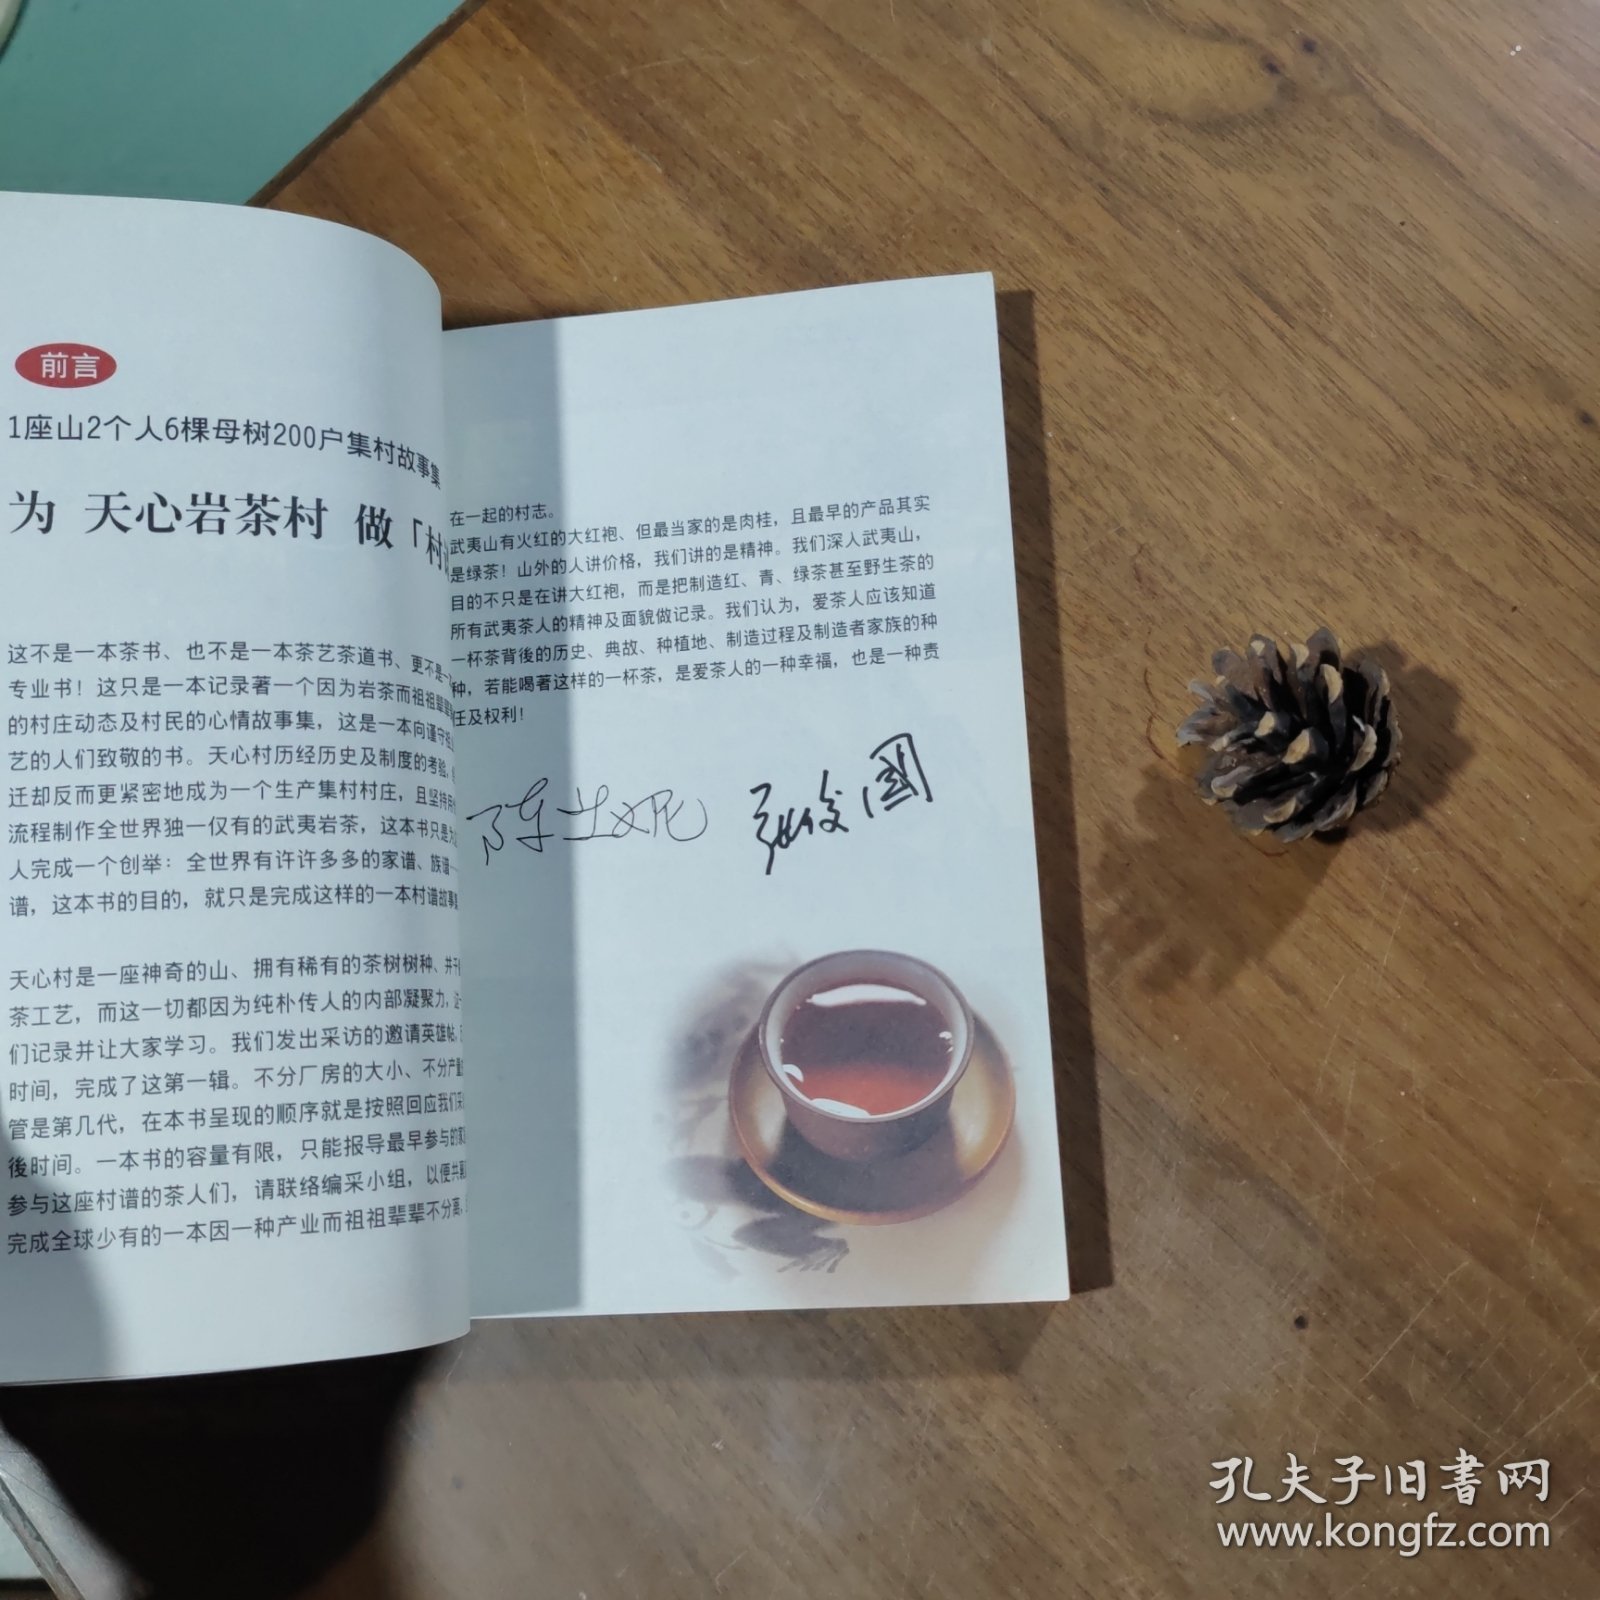 前言
1座山2个人6棵母树200户集村故事集
为 天心岩茶村 做「村
这不是一本茶书、也不是一本茶艺茶道书、更不是一
专业书！这只是一本记录著一个因为岩茶而祖祖辈辈
的村庄动态及村民的心情故事集，这是一本向谨守
艺的人们致敬的书。天心村历经历史及制度的考验，
迁却反而更紧密地成为一个生产集村村庄，且坚持用
流程制作全世界独一仅有的武夷岩茶，这本书只是为
人完成一个创举：全世界有许许多多的家谱、族谱
谱，这本书的目的，就只是完成这样的一本村谱故事
天心村是一座神奇的山、拥有稀有的茶树树种、并
茶工艺，而这一切都因为纯朴传人的内部凝聚力，
们记录并让大家学习。我们发出采访的邀请英雄帖，
时间，完成了这第一辑。不分厂房的大小、不分产量
管是第几代，在本书呈现的顺序就是按照回应我们采
後时间。一本书的容量有限，只能报导最早参与的家
参与这座村谱的茶人们，请联络编采小组，以便共
完成全球少有的一本因一种产业而祖祖辈辈不分离，
在一起的村志。
武夷山有火红的大红袍、但最当家的是肉桂，且最早的产品其实
是绿茶！山外的人讲价格，我们讲的是精神。我们深入武夷山，
目的不只是在讲大红袍，而是把制造红、青、绿茶甚至野生茶的
所有武夷茶人的精神及面貌做记录。我们认为，爱茶人应该知道
一杯茶背後的历史、典故、种植地、制造过程及制造者家族的种
种，若能喝著这样的一杯茶，是爱茶人的一种幸福，也是一种责
任及权利！
孔夫子旧书网
www.kongfz.com